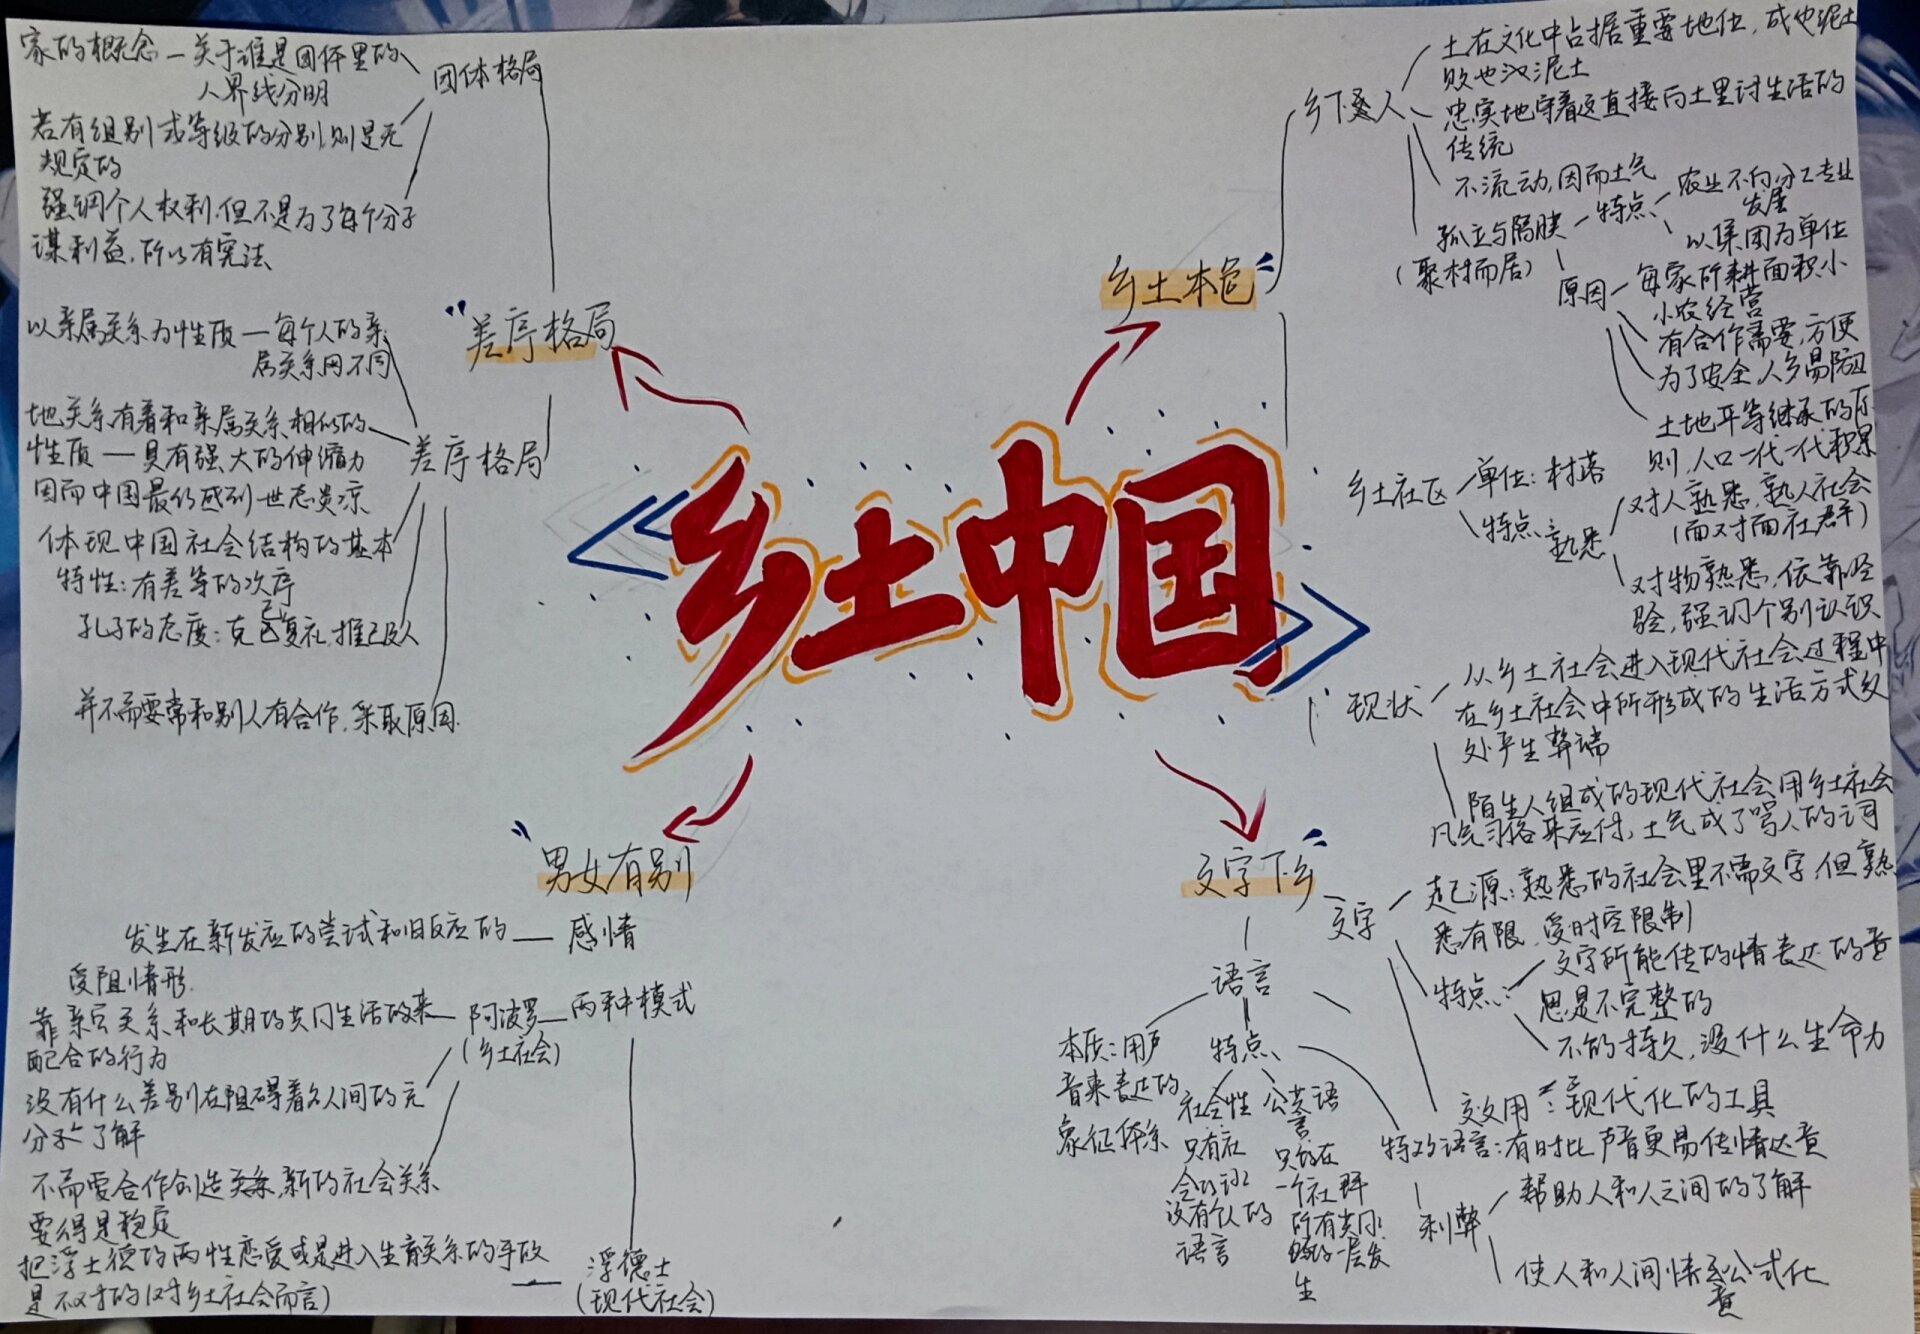 《乡土中国》
“差序格局
团体格局
家的概念—关于谁是团体里的
人界线分明
若有组别或等级的分别,则是先
规定的
强调个人权利,但不是为了每个分子
谋利益,所以有宪法
差序格局
以亲属关系为性质—每个人的亲
属关系网不同
地关系有着和亲属关系相似的
性质—具有强大的伸缩力
因而中国最能感到世态炎凉
体现中国社会结构的基本
特性:有差等的次序
孔子的态度:克己复礼,推己及人
并不需要常和别人有合作,采取原因.
乡土本色”
乡下人
土在文化中占据重要地位,成也泥土
败也泥土
忠实地守着这直接向土里讨生活的
传统
不流动,因而土气
孤立与隔膜
(聚村而居)
特点
农业不向分工专业
发展
以集团为单位
原因
每家所耕面积小
小农经营
有合作需要,方便
为了安全,人多易防卫
土地平等继承的原
则,人口一代一代积累
乡土社区
单位:村落
特点
熟悉
对人熟悉,熟人社会
(面对面社群)
对物熟悉,依靠经
验,强调个别认识
现状
从乡土社会进入现代社会过程中
在乡土社会中所形成的生活方式处
处产生弊端
陌生人组成的现代社会用乡土社会
风气习俗来应付,土气成了骂人的词
“男女有别
感情
发生在新发应的尝试和旧反应的
受阻情形.
两种模式
阿波罗
(乡土社会)
靠亲密关系和长期的共同生活的来
配合的行为
没有什么差别在阻碍着各人间的充
分了解
不需要合作创造关系,新的社会关系
要得是稳定
浮德士
(现代社会)
把浮士德的两性恋爱或是进入生育关系的手段
是不对的(对乡土社会而言)
文字下乡”
语言
本质:用声
音来表达的
象征体系
特点
社会性
只有社
会的
没有个人的
语言
公共语
言
只能在
一个社群
所有共同
一层发
生
文字
起源:熟悉的社会里不需文字,但熟
悉有限,受时空限制
特点:
文字所能传的情表达的意
思是不完整的
不能持久,没什么生命力
效用:现代化的工具
特殊语言:有时比声音更易传情达意
利弊
帮助人和人之间的了解
使人和人间情意公式化